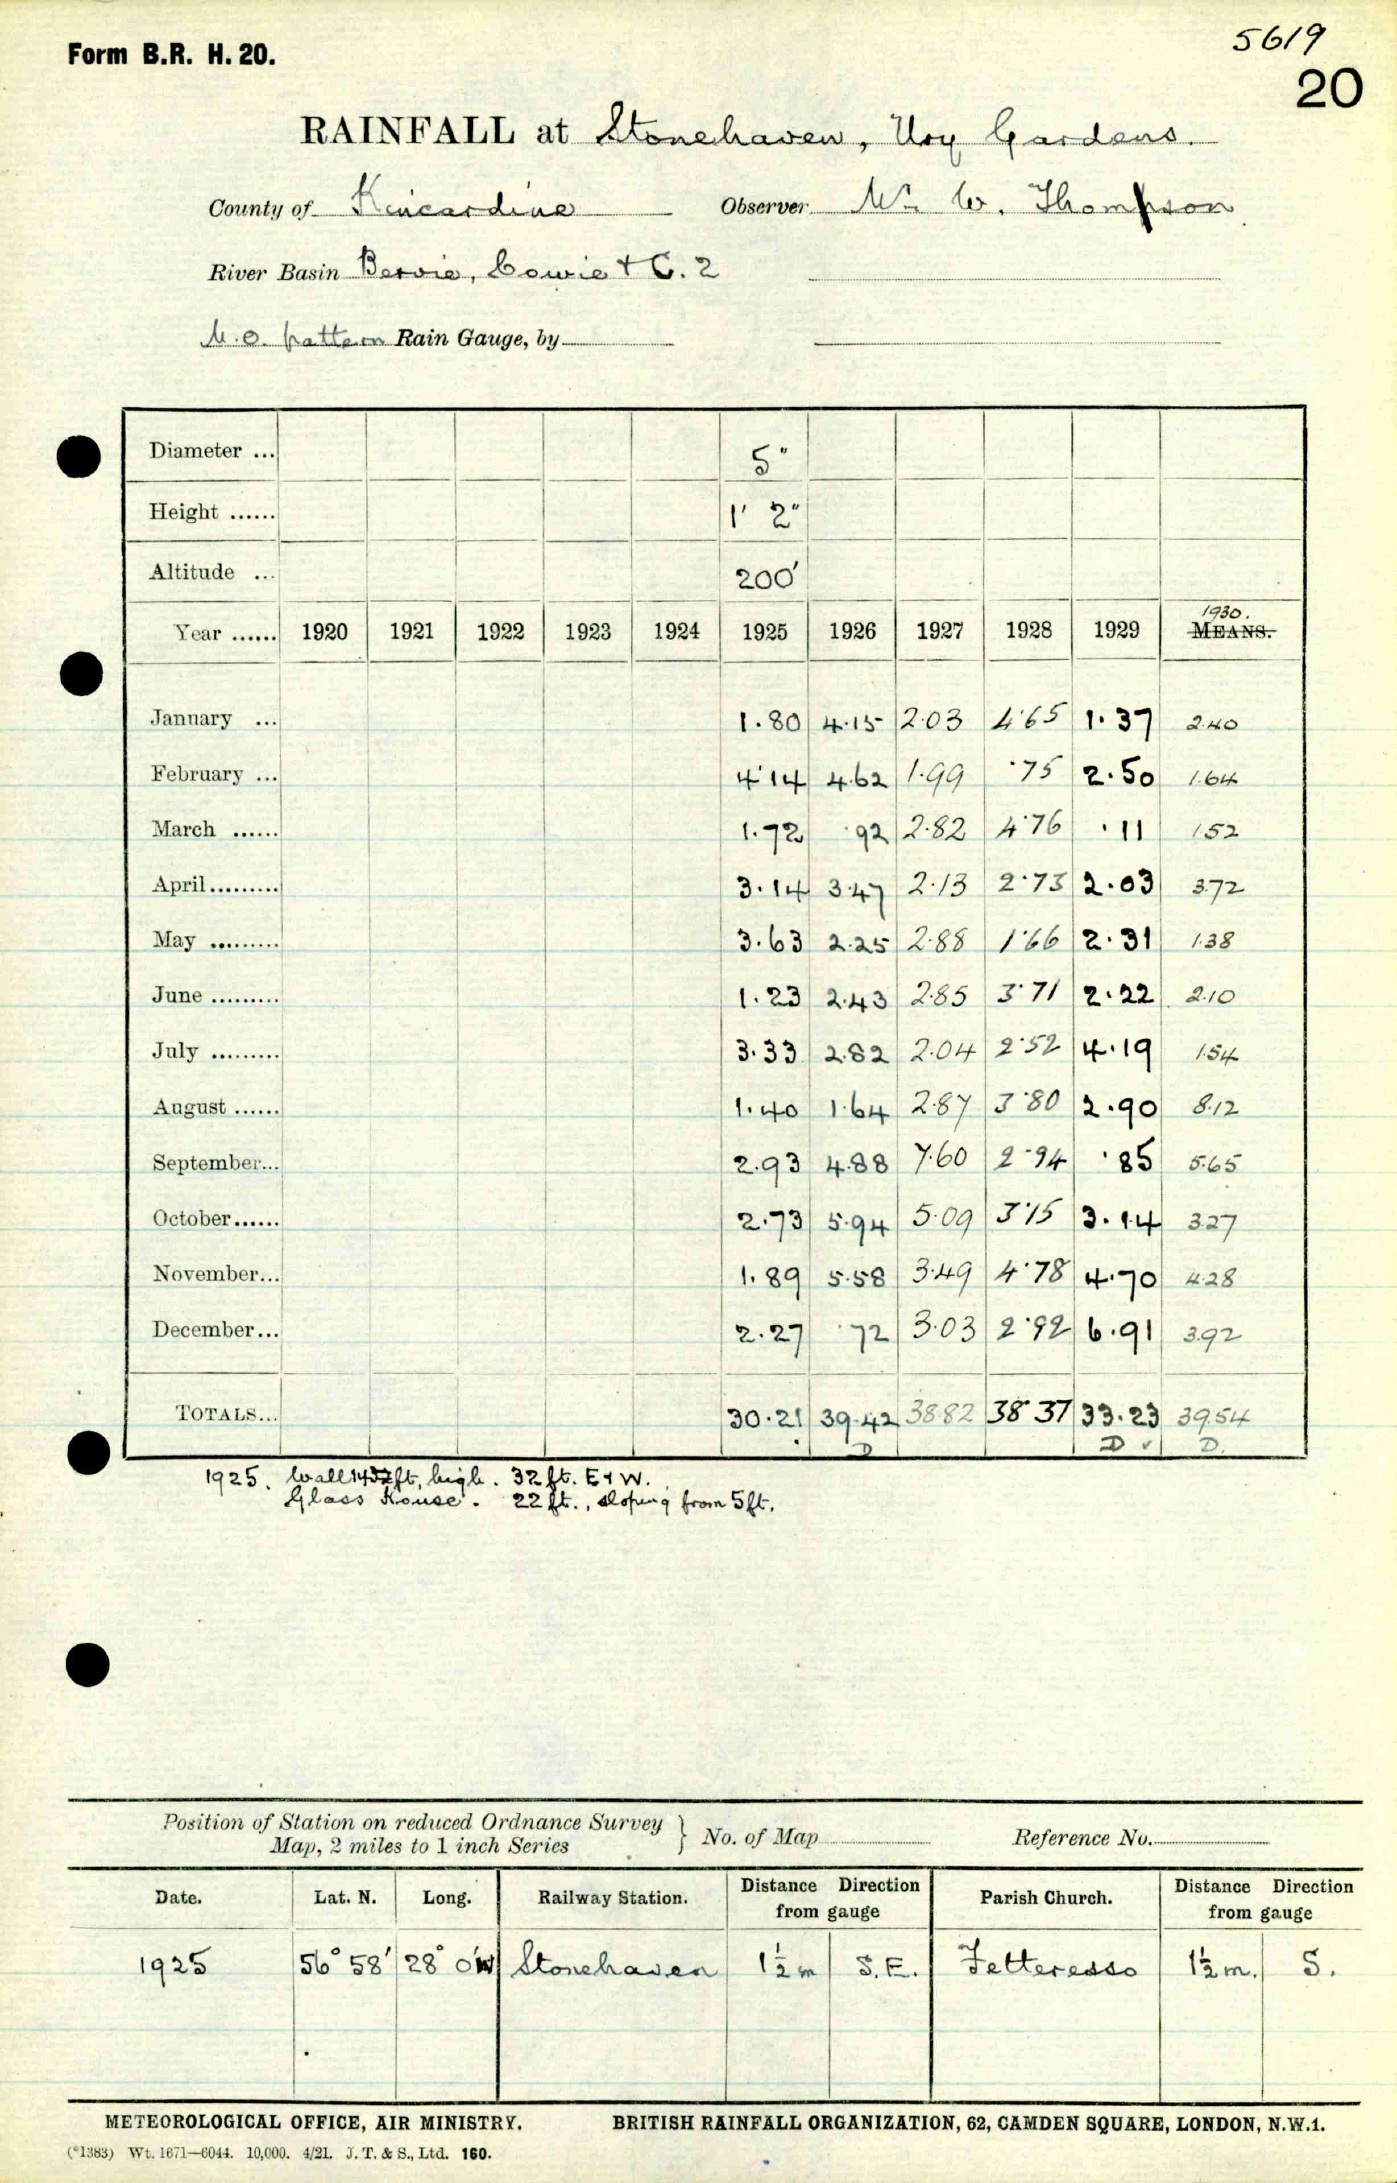 Form B.R. H. 20.
5619
20
RAINFALL at Stonehaven, Ury Gardens.
County of Kincardine Observer Mr. W. Thompson
River Basin Bervie, Cowie + C. 2
M.O. pattern Rain Gauge, by
Diameter ... 5"
Height ...... 1' 2"
Altitude ... 200'
Year ...... 1920 1921 1922 1923 1924 1925 1926 1927 1928 1929 1930. MEANS.
January ... 1.80 4.15 2.03 4.65 1.37 2.40
February ... 4.14 4.62 1.99 .75 2.50 1.64
March ...... 1.72 .92 2.82 4.76 .11 1.52
April......... 3.14 3.47 2.13 2.73 2.03 3.72
May ......... 3.63 2.25 2.88 1.66 2.31 1.38
June ......... 1.23 2.43 2.85 3.71 2.22 2.10
July ......... 3.33 2.82 2.04 2.52 4.19 1.54
August ...... 1.40 1.64 2.87 3.80 2.90 8.12
September... 2.93 4.88 7.60 2.94 .85 5.65
October...... 2.73 5.94 5.09 3.15 3.14 3.27
November... 1.89 5.58 3.49 4.78 4.70 4.28
December... 2.27 .72 3.03 2.92 6.91 3.92
TOTALS... 30.21 39.42 38.82 38.37 33.23 39.54
D D ✓ D.
1925. Wall ft. high. 32 ft. E + W.
Glass House. 22 ft., sloping from 5 ft.
Position of Station on reduced Ordnance Survey
Map, 2 miles to 1 inch Series } No. of Map Reference No.
Date. Lat. N. Long. Railway Station. Distance Direction from gauge Parish Church. Distance Direction from gauge
1925 56° 58' 28° 0'W Stonehaven 1½ m S.E. Fetteresso 1½ m. S.
METEOROLOGICAL OFFICE, AIR MINISTRY. BRITISH RAINFALL ORGANIZATION, 62, CAMDEN SQUARE, LONDON, N.W.1.
(*1383) Wt. 1671—6044. 10,000. 4/21. J. T. & S., Ltd. 160.